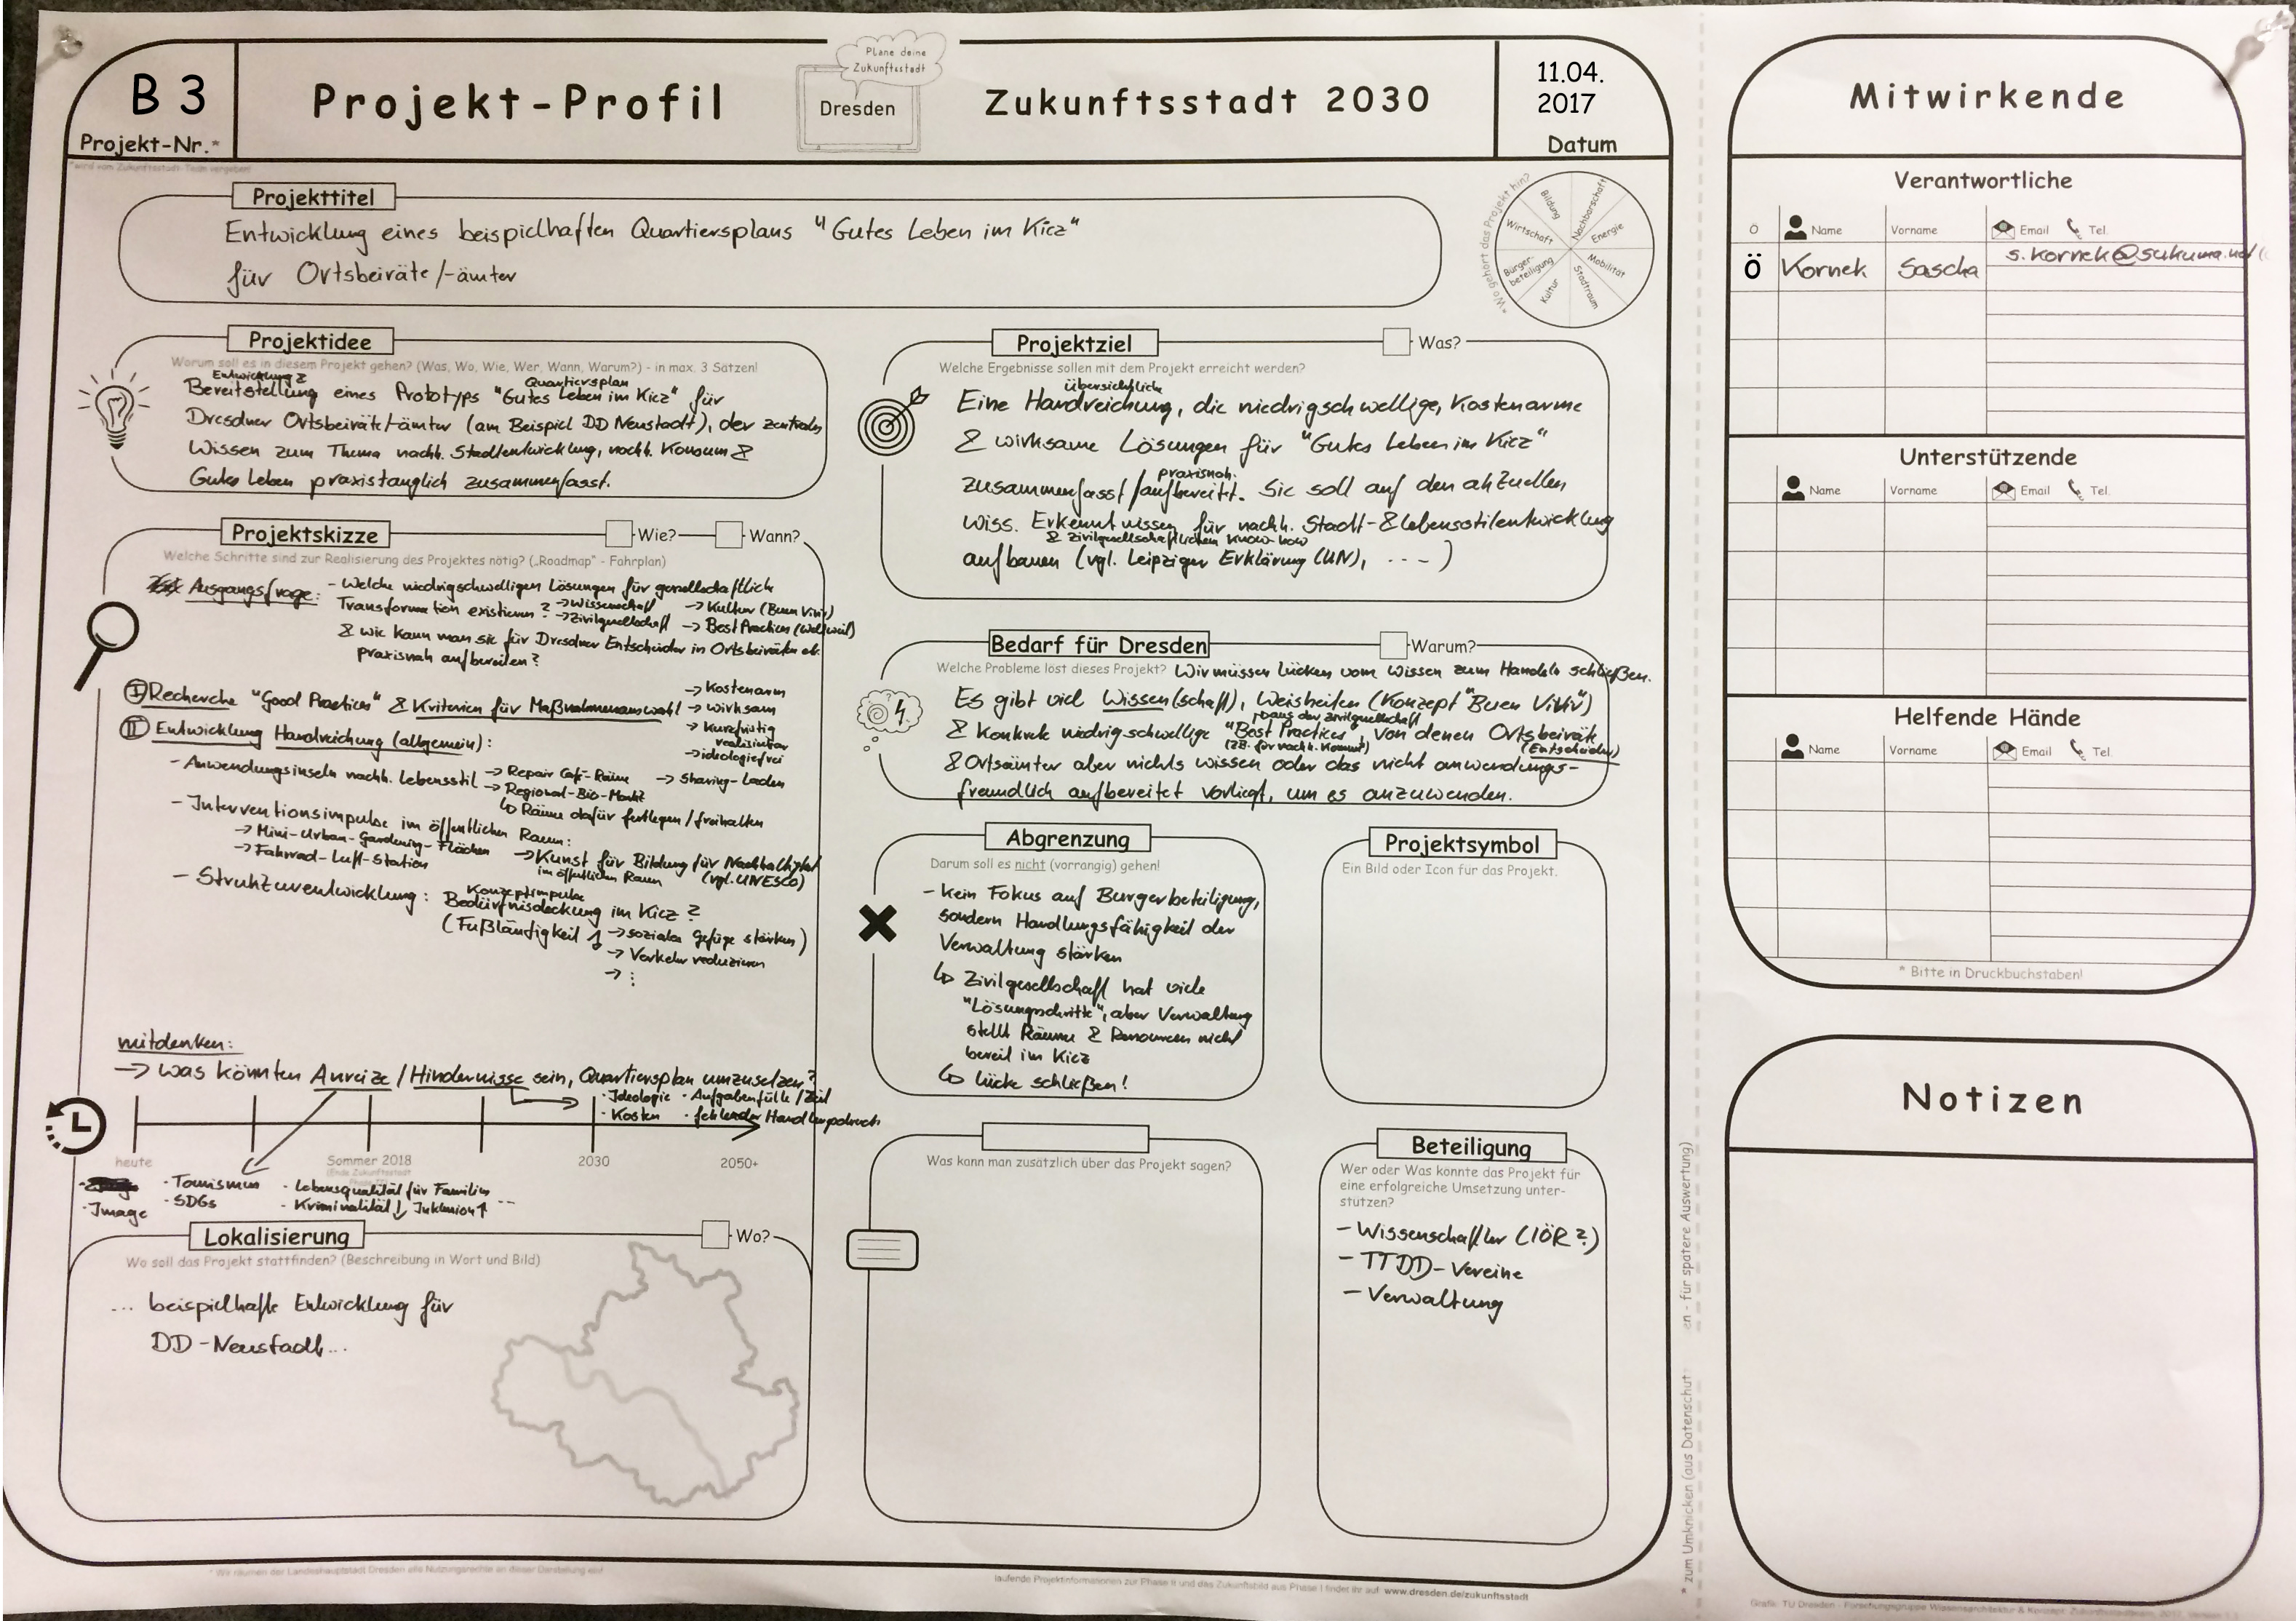 B 3
Projekt-Nr.*
*wird vom Zukunftsstadt-Team vergeben
Projekt-Profil
Plane deine
Zukunftsstadt
Dresden
Zukunftsstadt 2030
11.04.
2017
Datum
Projekttitel
Entwicklung eines beispielhaften Quartiersplans "Gutes Leben im Kiez"
für Ortsbeiräte/-ämter
*Wo gehört das Projekt hin?
Bildung
Nachbarschaft
Energie
Mobilität
Stadtraum
Kultur
Bürger-
beteiligung
Wirtschaft
Projektidee
Worum soll es in diesem Projekt gehen? (Was, Wo, Wie, Wer, Wann, Warum?) - in max. 3 Sätzen!
Entwicklung &
Quartiersplan
Bereitstellung eines Prototyps "Gutes Leben im Kiez" für
Dresdner Ortsbeiräte/-ämter (am Beispiel DD Neustadt), der zentrales
Wissen zum Thema nachh. Stadtentwicklung, nachh. Konsum &
Gutes Leben praxistauglich zusammenfasst.
Projektskizze
Wie?
Wann?
Welche Schritte sind zur Realisierung des Projektes nötig? („Roadmap" - Fahrplan)
Ausgangsfrage: - Welche niedrigschwelligen Lösungen für gesellschaftlich
Transformation existieren? → Wissenschaft → Kultur (Buen Vivir)
→ Zivilgesellschaft → Best Practices (weltweit)
& wie kann man sie für Dresdner Entscheider in Ortsbeiräten etc.
praxisnah aufbereiten?
I Recherche "Good Practices" & Kriterien für Maßnahmenauswahl
→ Kostenarm
→ wirksam
→ Kurzfristig
realisierbar
→ ideologiefrei
II Entwicklung Handreichung (allgemein):
- Anwendungsinseln nachh. Lebensstil → Repair Café-Räume → Sharing-Laden
→ Regional-Bio-Markt
↳ Räume dafür festlegen / freihalten
- Interventionsimpulse im öffentlichen Raum:
→ Mini-Urban-Gardening-Flächen
→ Fahrrad-Luft-Station
→ Kunst für Bildung für Nachhaltigkeit
im öffentlichen Raum (vgl. UNESCO)
- Strukturentwicklung: Konzeptimpulse
Bedürfnisdeckung im Kiez?
(Fußläufigkeit ↑ → soziales Gefüge stärken)
→ Verkehr reduzieren
→ ⋮
mitdenken:
→ Was könnten Anreize / Hindernisse sein, Quartiersplan umzusetzen?
· Ideologie · Aufgabenfülle / Zeit
· Kosten · fehlender Handlungsdruck
heute
Sommer 2018
(Ende Zukunftsstadt
2030
2050+
· Image
· Tourismus
· SDGs
· Lebensqualität für Familien
· Kriminalität ↓ Inklusion ↑ ...
Lokalisierung
Wo?
Wo soll das Projekt stattfinden? (Beschreibung in Wort und Bild)
... beispielhafte Entwicklung für
DD-Neustadt...
Projektziel
Was?
Welche Ergebnisse sollen mit dem Projekt erreicht werden?
übersichtliche
Eine Handreichung, die niedrigschwellige, Kostenarme
& wirksame Lösungen für "Gutes Leben im Kiez"
praxisnah
zusammenfasst / aufbereitet. Sie soll auf den aktuellen
wiss. Erkenntnissen für nachh. Stadt- & Lebensstilentwicklung
& zivilgesellschaftlichem Know-how
aufbauen (vgl. Leipziger Erklärung (UN), ----)
Bedarf für Dresden
Warum?
Welche Probleme löst dieses Projekt? Wir müssen Lücken vom Wissen zum Handeln schließen.
Es gibt viel Wissen(schaft), Weisheiten (Konzept "Buen ViVir")
aus der Zivilgesellschaft
& Konkrete niedrigschwellige "Best Practices", von denen Ortsbeiräte
(zB. für nachh. Konsum) (Entscheider)
& Ortsämter aber nichts wissen oder das nicht anwendungs-
freundlich aufbereitet vorliegt, um es anzuwenden.
Abgrenzung
Darum soll es nicht (vorrangig) gehen!
- kein Fokus auf Bürgerbeteiligung,
sondern Handlungsfähigkeit der
Verwaltung stärken
↳ Zivilgesellschaft hat viele
"Lösungsschritte", aber Verwaltung
stellt Räume & Ressourcen nicht
bereit im Kiez
↳ Lücke schließen!
Projektsymbol
Ein Bild oder Icon für das Projekt.
Was kann man zusätzlich über das Projekt sagen?
Beteiligung
Wer oder Was könnte das Projekt für
eine erfolgreiche Umsetzung unter-
stützen?
- Wissenschaftler (IÖR?)
- TTDD-Vereine
- Verwaltung
* Wir räumen der Landeshauptstadt Dresden alle Nutzungsrechte an dieser Darstellung ein!
laufende Projektinformationen zur Phase II und das Zukunftsbild aus Phase I findet ihr auf: www.dresden.de/zukunftsstadt
* zum Umknicken (aus Datenschut
en - für spätere Auswertung)
Mitwirkende
Verantwortliche
Ö Name Vorname Email Tel.
Ö Kornek Sascha s.kornek@sukuma.net
Unterstützende
Name Vorname Email Tel.
Helfende Hände
Name Vorname Email Tel.
* Bitte in Druckbuchstaben!
Notizen